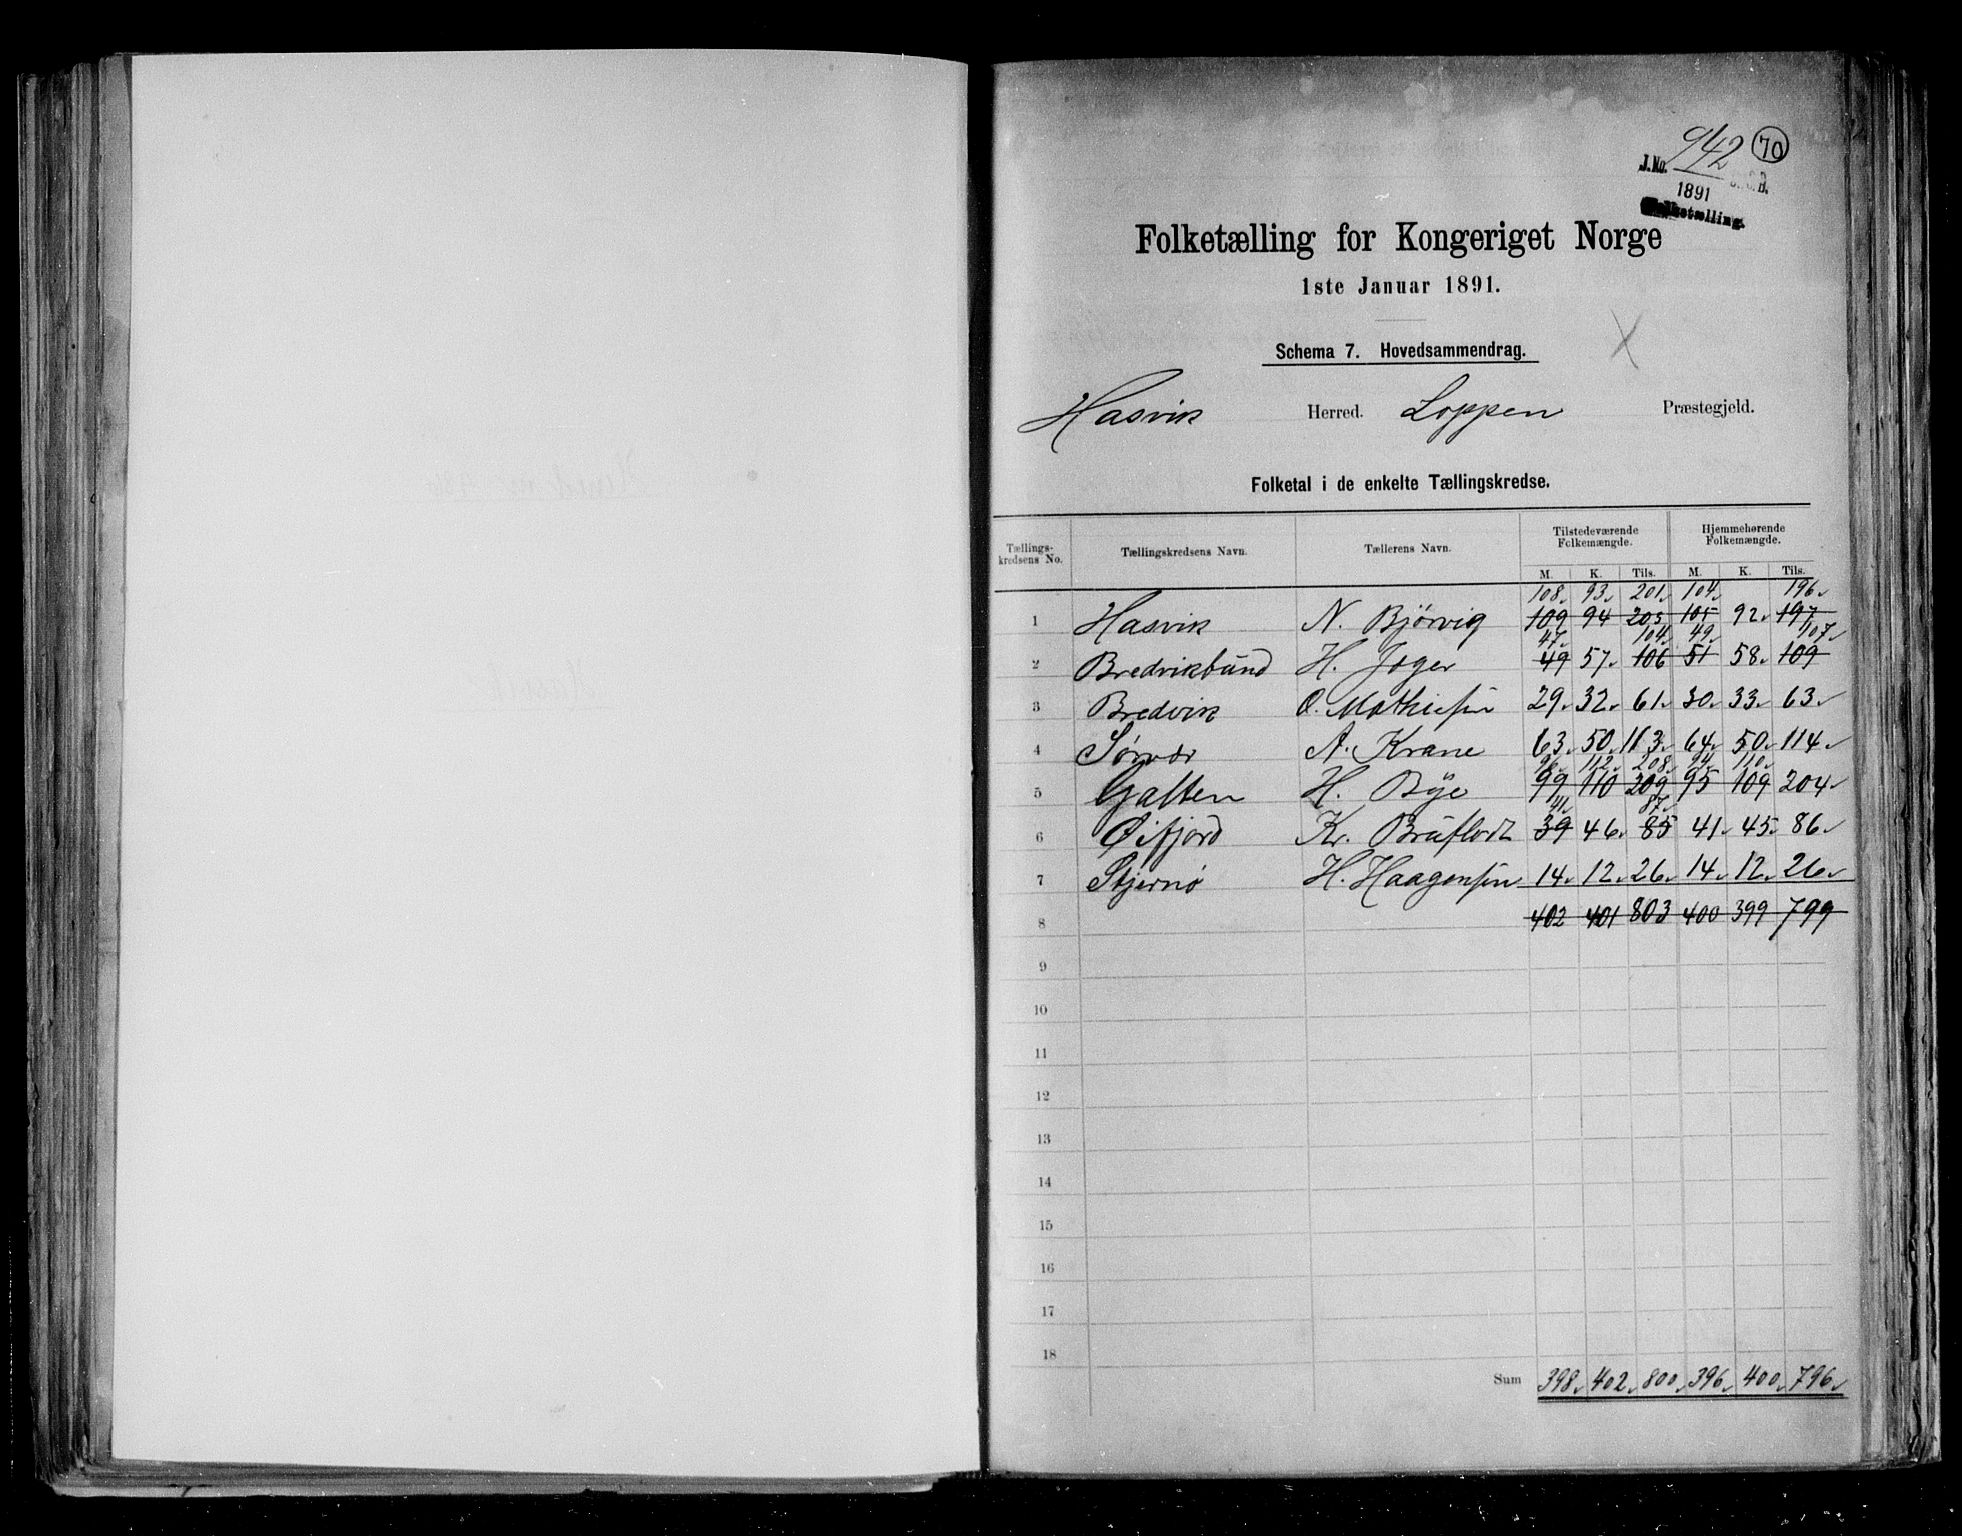 942 70
J.No.
1891
Folketælling.
Folketælling for Kongeriget Norge
1ste Januar 1891.
Schema 7. Hovedsammendrag.
Hasvik Herred. Loppen Præstegjeld.
Folketal i de enkelte Tællingskredse.
Tællings-kredsens No. Tællingskredsens Navn. Tællerens Navn. Tilstedeværende Folkemængde. Hjemmehørende Folkemængde.
M. K. Tils. M. K. Tils.
108 93 201 104 196
1 Hasvik N. Bjørvig 109 94 203 105 92 197
47 104 49 107
2 Bredvikbund H. Jøger 49 57 106 51 58 109
3 Bredvik O. Mathiesen 29 32 61 30 33 63
4 Sørvær A. Krane 63 50 113 64 50 114
96 112 208 94 110
5 Galten H. Bye 99 110 209 95 109 204
41 87
6 Øifjord Kr. Bruflodt 39 46 85 41 45 86
7 Stjernø H. Haagensen 14 12 26 14 12 26
8 402 401 803 400 399 799
9
10
11
12
13
14
15
16
17
18
Sum 398 402 800 396 400 796